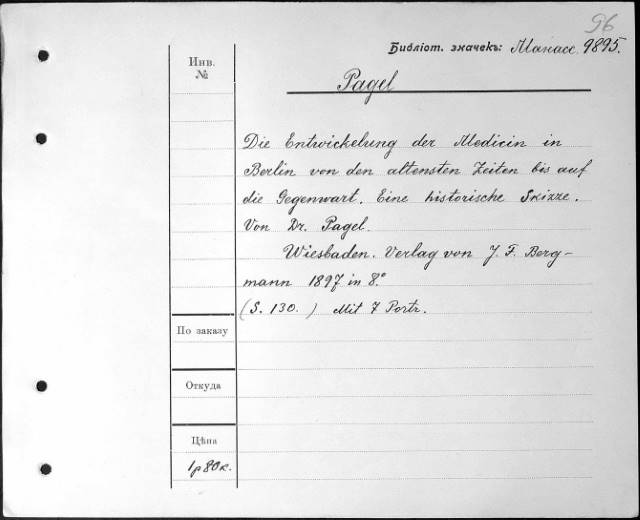 96
Библіот. значекъ: Манасс. 9895.
Инв.
№
Pagel
Die Entwickelung der Medicin in
Berlin von den altensten Zeiten bis auf
die Gegenwart. Eine historische Skizze.
Von Dr. Pagel.
Wiesbaden. Verlag von J. F. Berg-
mann 1897 in 8°.
(S. 130.) Mit 7 Portr.
По заказу
Откуда
Цѣна
1р 80к.